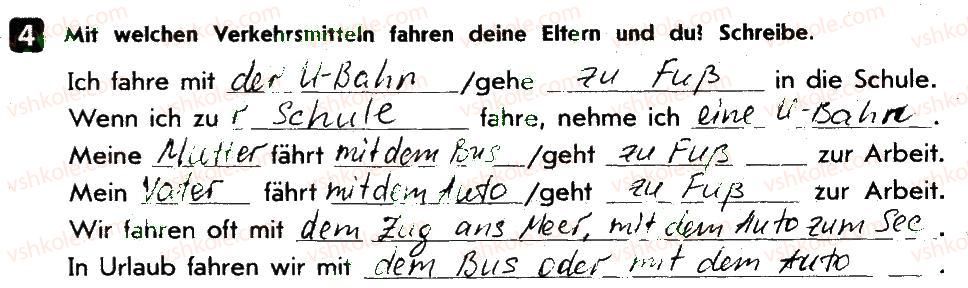 4 Mit welchen Verkehrsmitteln fahren deine Eltern und du? Schreibe.
Ich fahre mit der U-Bahn /gehe zu Fuß in die Schule.
Wenn ich zu r Schule fahre, nehme ich eine U-Bahn.
Meine Mutter fährt mit dem Bus /geht zu Fuß zur Arbeit.
Mein Vater fährt mit dem Auto /geht zu Fuß zur Arbeit.
Wir fahren oft mit dem Zug ans Meer, mit dem Auto zum See.
In Urlaub fahren wir mit dem Bus oder mit dem Auto.